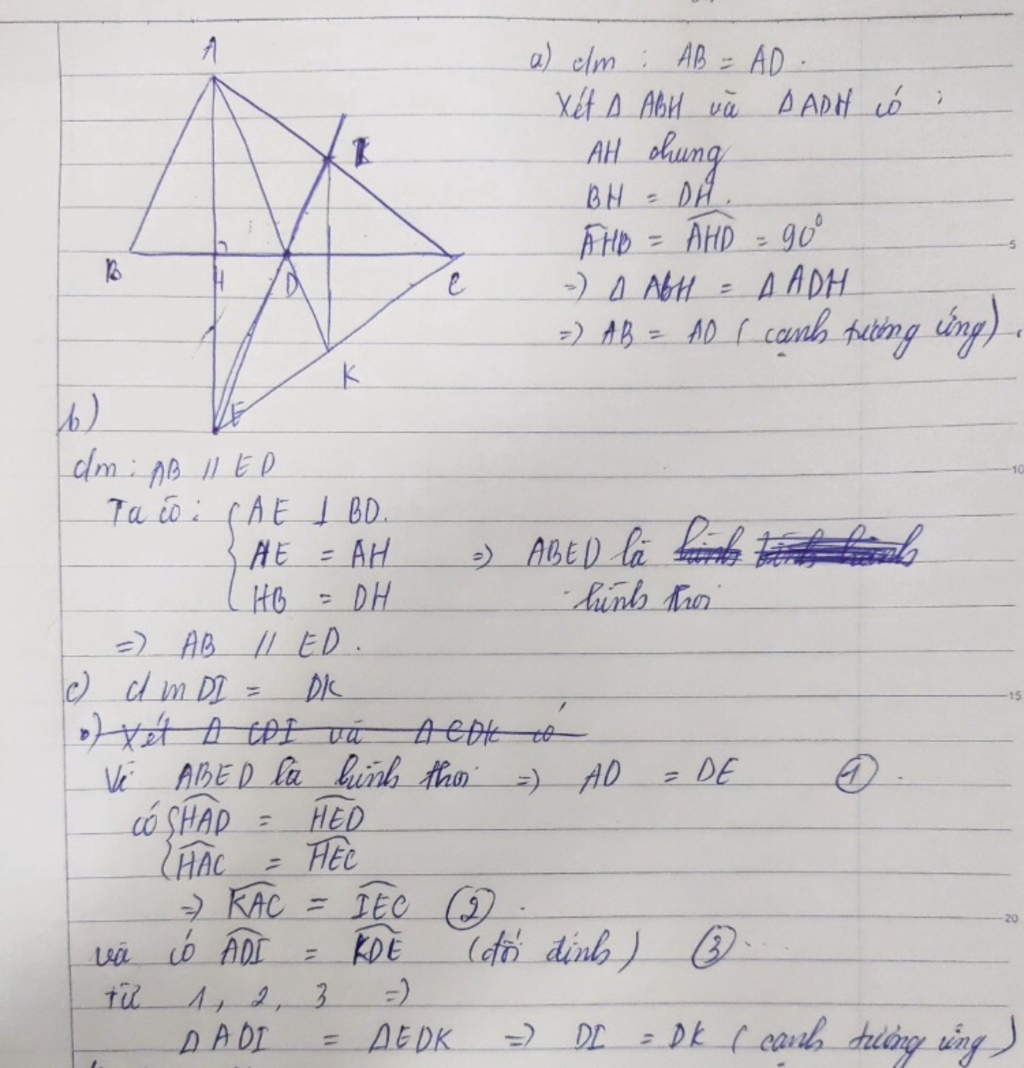 A
I
B
H
D
C
K
E
a) cm : AB = AD.
Xét Δ ABH và Δ ADH có :
AH chung
BH = DH.
AHB = AHD = 90°
=> Δ ABH = Δ ADH
=> AB = AD ( cạnh tương ứng).
b)
cm : AB // ED
Ta có : { AE ⊥ BD.
HE = AH => ABED là hình bình hành
HB = DH hình thoi
=> AB // ED.
c) cm DI = DK
o) Xét Δ CDI và Δ CDK có
Vì ABED là hình thoi => AD = DE ①.
có { HAD = HED
HAC = HEC
=> KAC = IEC ②.
và có ADI = KDE (đối đỉnh) ③
từ 1, 2, 3 =>
Δ ADI = Δ EDK => DI = DK ( cạnh tương ứng)
5
10
15
20